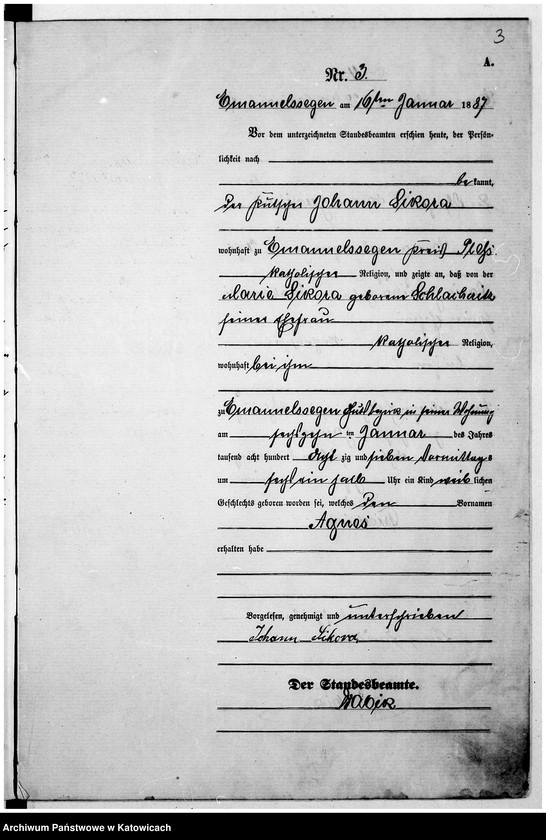 3
A.
Nr. 3.
Emanuelssegen am 16ten Januar 1887
Vor dem unterzeichneten Standesbeamten erschien heute, der Persön-
lichkeit nach
be kannt,
der Kutscher Johann Sikora
wohnhaft zu Emanuelssegen Kreis Pleß
katholischer Religion, und zeigte an, daß von der
Marie Sikora geborenen
seiner Ehefrau
katholischer Religion,
wohnhaft bei ihm
zu Emanuelssegen Gutsbezirk in seiner Wohnung
am sechszehn ten Januar des Jahres
tausend acht hundert Acht zig und sieben Vormittags
um sechs ein halb Uhr ein Kind weib lichen
Geschlechts geboren worden sei, welches den Vornamen
Agnes
erhalten habe
Vorgelesen, genehmigt und unterschrieben
Johann Sikora
Der Standesbeamte.
Archiwum Państwowe w Katowicach